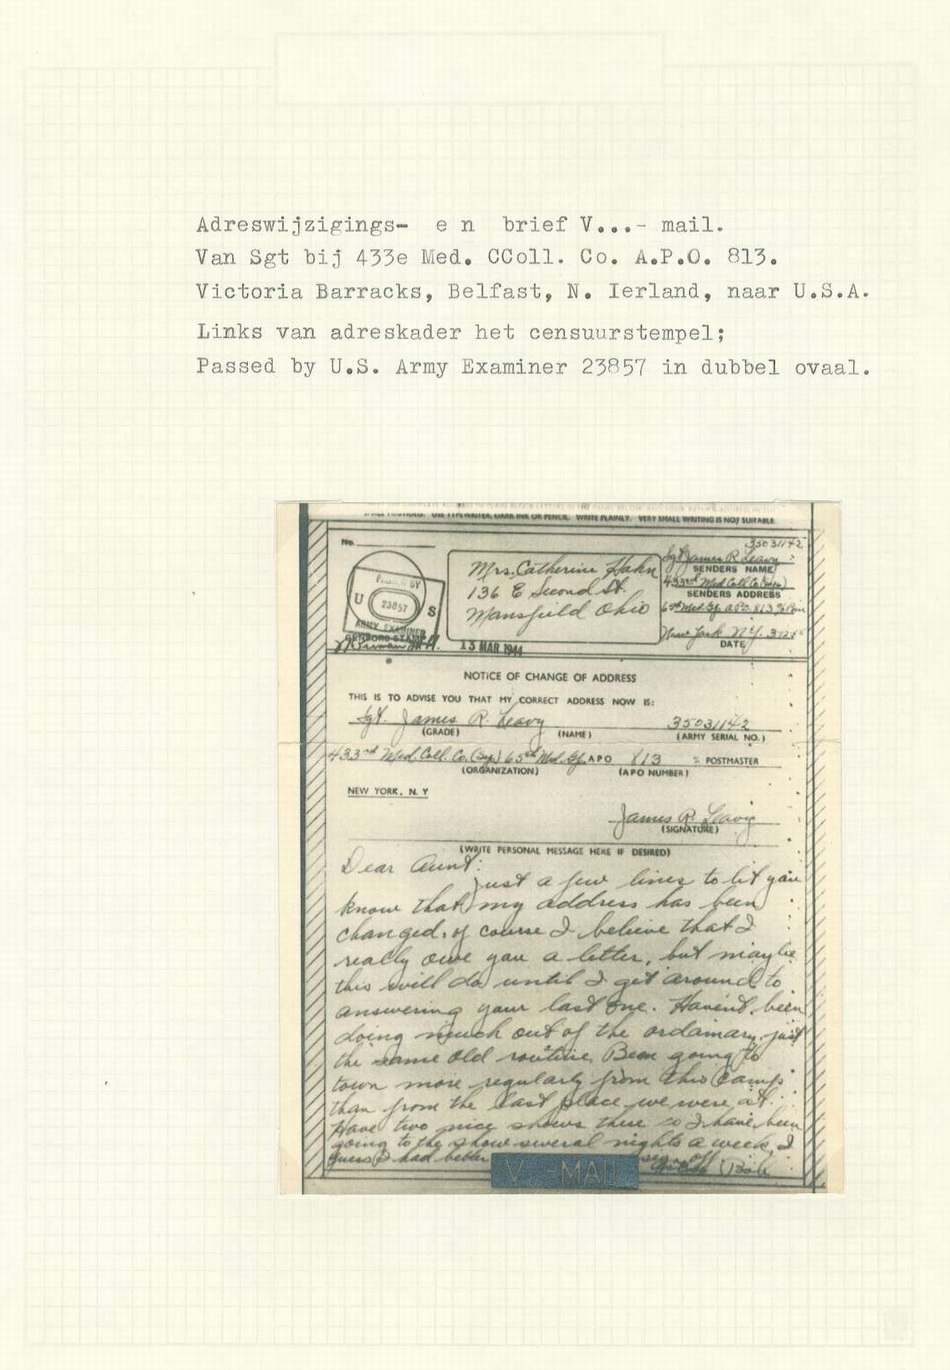 Adreswijzigings- e n brief V...- mail.
Van Sgt bij 433e Med. CColl. Co. A.P.O. 813.
Victoria Barracks, Belfast, N. Ierland, naar U.S.A.
Links van adreskader het censuurstempel;
Passed by U.S. Army Examiner 23857 in dubbel ovaal.
USE TYPEWRITER, DARK INK OR PENCIL. WRITE PLAINLY. VERY SMALL WRITING IS NOT SUITABLE.
No.
PASSED BY
U 23857 S
ARMY EXAMINER
CENSORS STAMP
Mrs. Catherine Hahn
136 E Second St.
Mansfield Ohio
13 MAR 1944
35031142
Sgt James R Leavy
SENDERS NAME
433rd Med Coll Co (Sep)
SENDERS ADDRESS
65th Med. Gp. A.P.O. 813 % P.m
New York N.Y.
DATE
NOTICE OF CHANGE OF ADDRESS
THIS IS TO ADVISE YOU THAT MY CORRECT ADDRESS NOW IS:
Sgt. James R. Leavy 35031142
(GRADE) (NAME) (ARMY SERIAL NO.)
433rd Med. Coll. Co. (Sep) 65th Med. Gp. APO 813 % POSTMASTER
(ORGANIZATION) (APO NUMBER)
NEW YORK, N. Y
James R. Leavy
(SIGNATURE)
(WRITE PERSONAL MESSAGE HERE IF DESIRED)
Dear Aunt:
Just a few lines to let you
know that my address has been
changed. of course I believe that I
really owe you a letter, but maybe
this will do until I get around to
answering your last one. Havent been
doing much out of the ordamary, just
the same old routine. Been going to
town more regularly from this Camp
than from the last place we were at.
Have two nice shows there so I have been
going to the show several nights a week, I
guess I had better sign off.
Bob
V...-MAIL